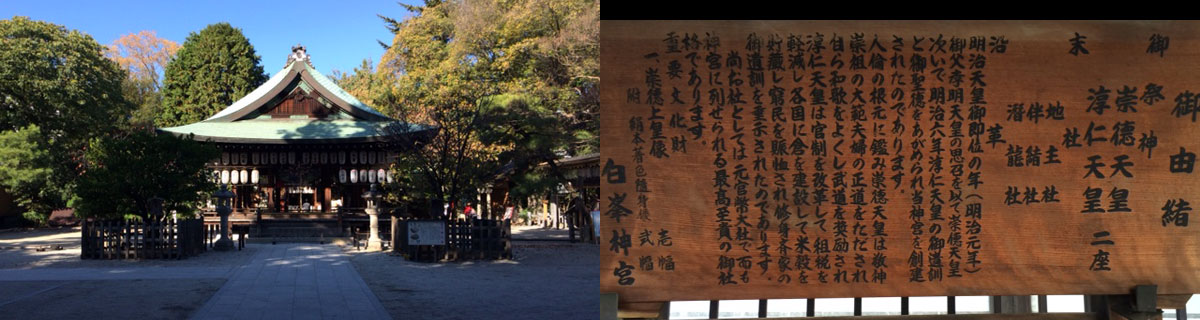 御由緒
御祭神
崇德天皇
淳仁天皇 二座
末社
地主社
伴緒社
潜龍社
沿革
明治天皇御即位の年(明治元年)
御父孝明天皇の思召を以て崇德天皇
次いで明治六年淳仁天皇の御遺訓
と御聖徳をあがめられ当神宮を創建
されたのであります。
人倫の根元に鑑み崇德天皇は敬神
崇祖の大範夫婦の正道をたゞされ
自ら和歌をよくし武道を奨励され
淳仁天皇は官制を改革して租税を
軽減し各国に倉を建設して米穀を
貯蔵し窮民を賑恤され修身斉家の
御遺訓を垂示されたのであります。
尚お社としては元官幣大社で而も
神宮に列せられる最高至貴の御社
格であります。
重要文化財
一、崇德上皇像 壱幅
附 絹本着色随身像 弐幅
白峯神宮